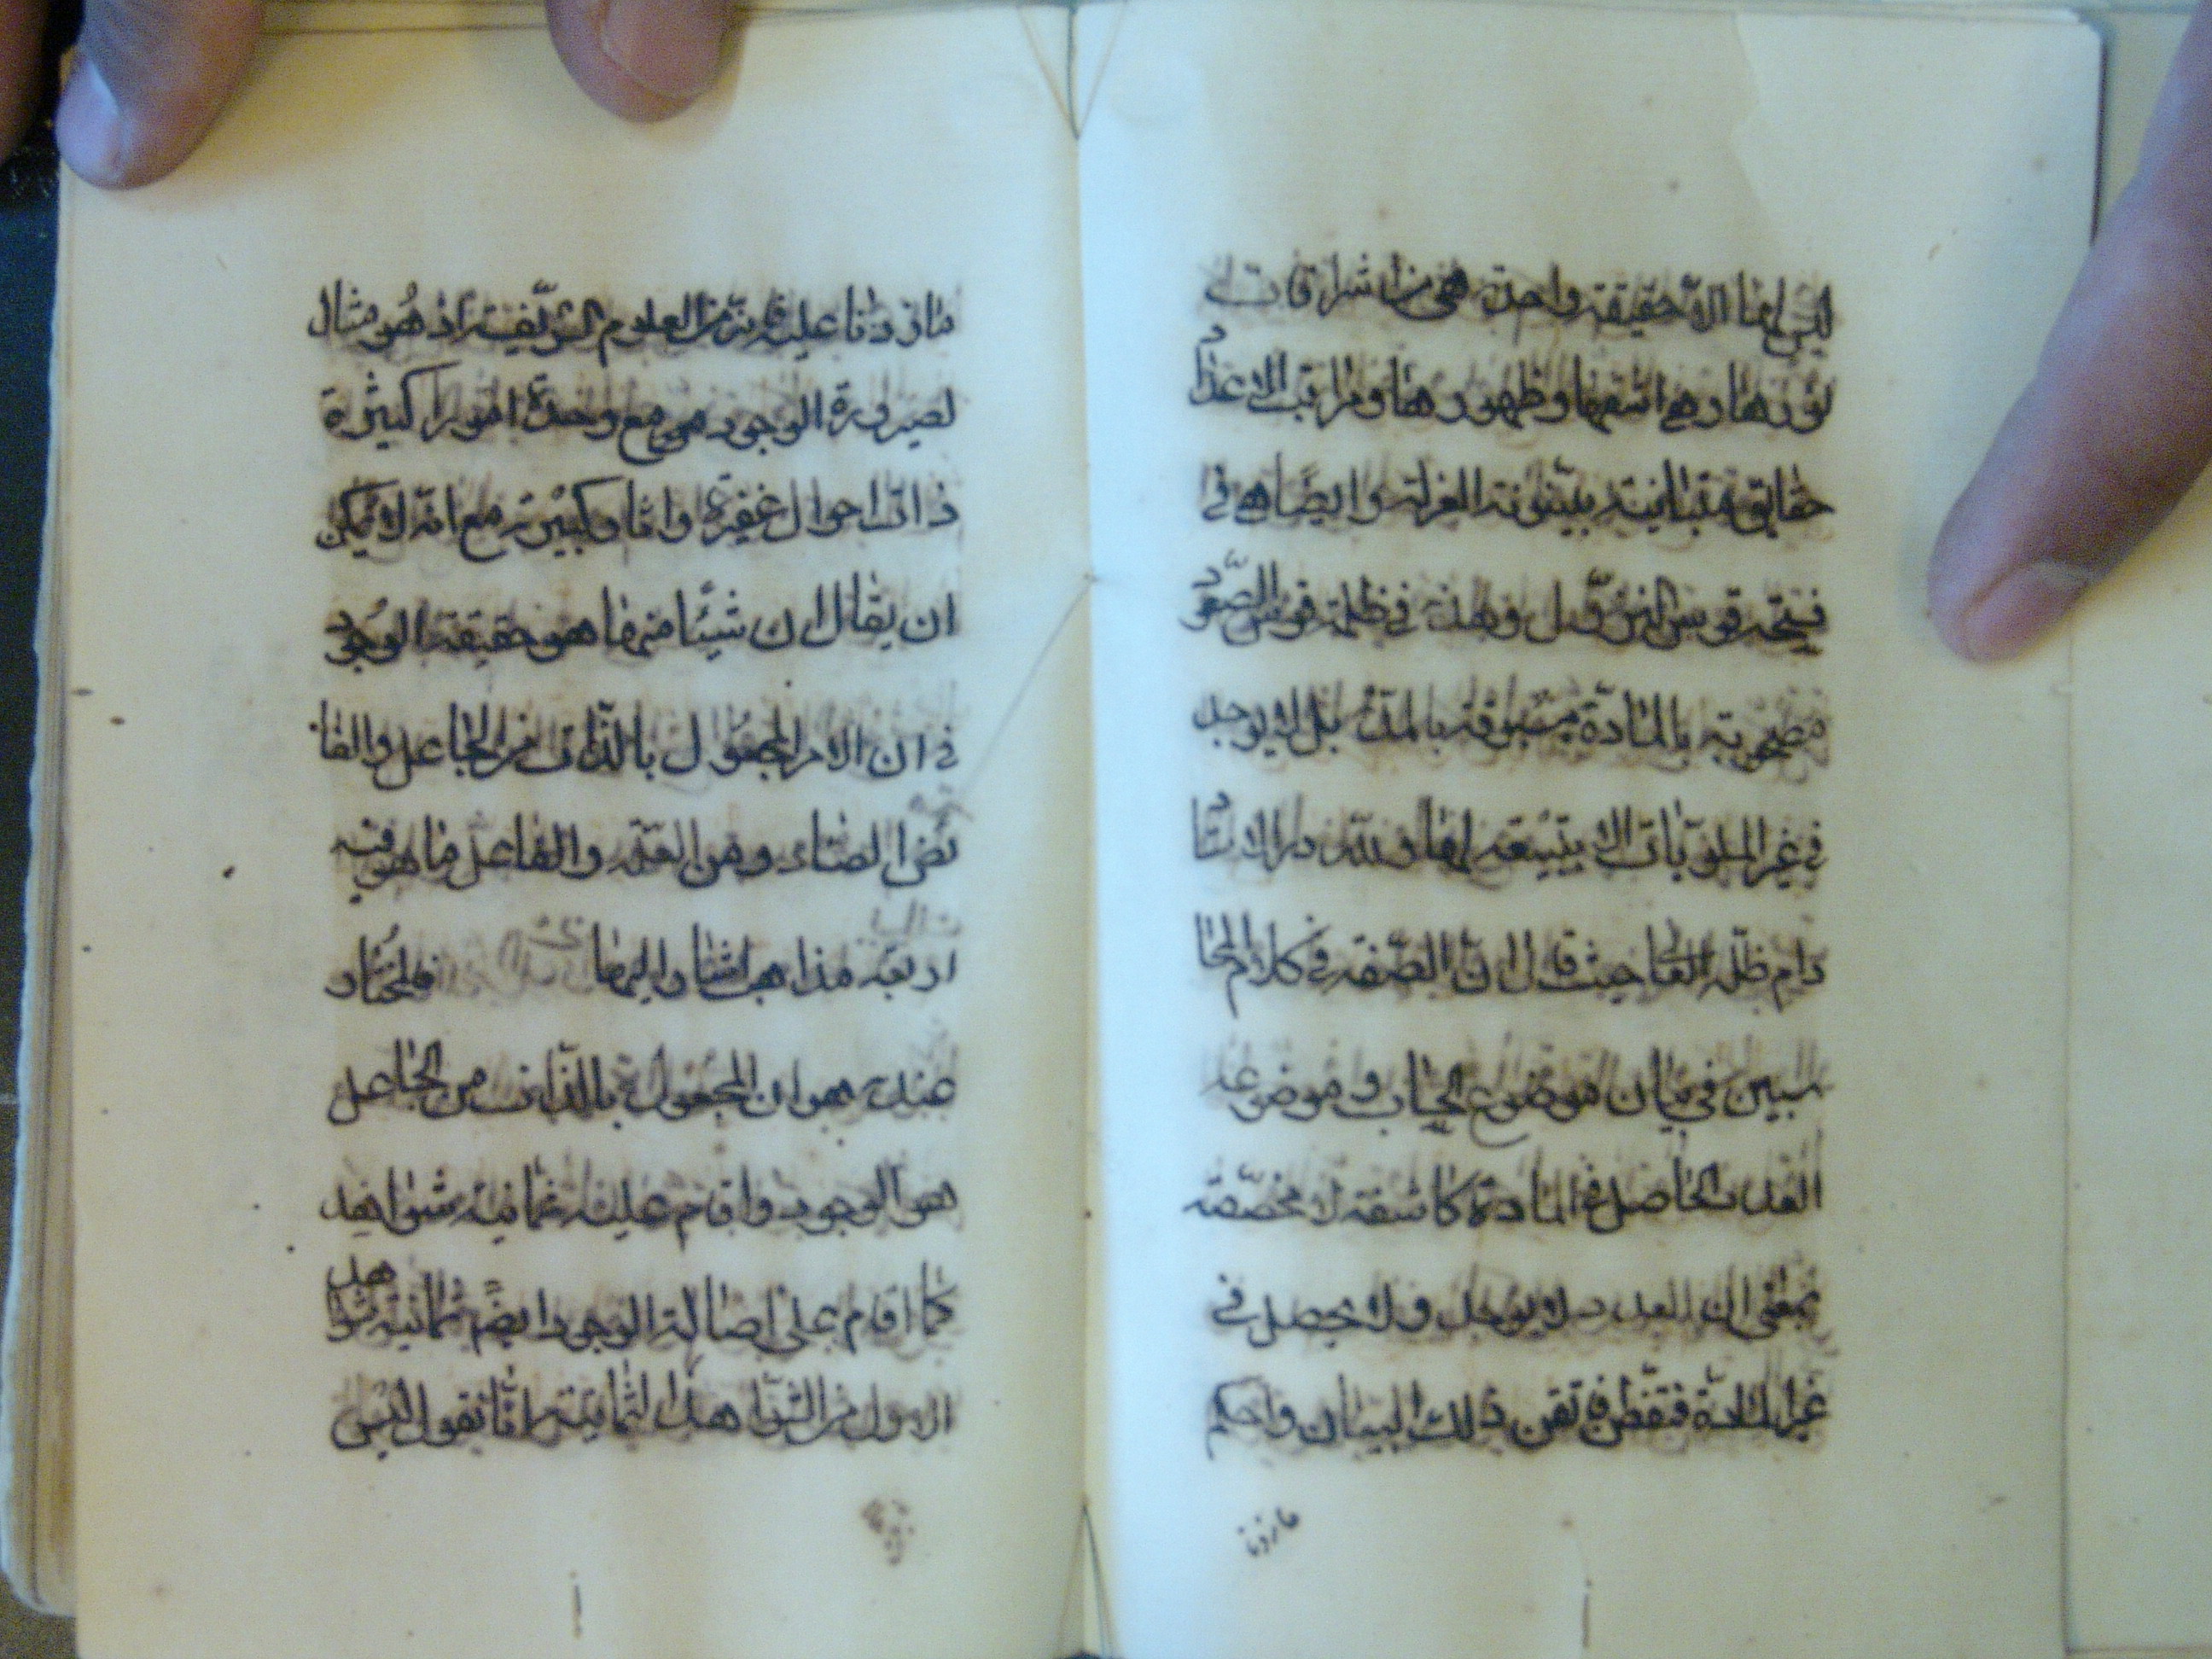 ليس لها الا حقيقة واحدة هي من اشراقات
نورها وهي اشعتها وظهورها ومراتب الاعداد
حقايق متباينة بينونة العزلة وايضا هي في
فتحة قوس النزول وهذه في ظلمة قوس الصعود
مصحوبة بالمادة مسبوقة بالمدة بل لا يوجد
في غير الماديات الا
دام ظله العا حيث قال ان الصفة في كلام المحا
سبين في بيان موضوع الحساب وموضوعه
العدد الحاصل في المادة كاشفة لا مخصصة
بمعنى ان العدد لا يوجد ولا يحصل في
غير المادة فتفطن فاتقن ذلك البيان واحكم
ما زدنا
ما زدنا عليه من العلوم الشريفة اذ هو مثال
لصيرورة الوجود مع وحدة امورا كثيرة
ذات احوال غفيرة واثار كبيرة مع انه لا يمكن
ان يقال ان شيئا منها هو حقيقة الوجود
في ان الامر المجعول بالذات من الجاعل والفا
ئض الصادر من العلة والفاعل ما هو فيه
اربعة مذاهب اشار اليها فالمختار
عنده هو ان المجعول بالذات من الجاعل
هو الوجود واقام عليه ثمانية شواهد
كما اقام على اصالة الوجود ايضا ثمانية شواهد
الاول من الشوا هذه الثمانية انا نقول ليس